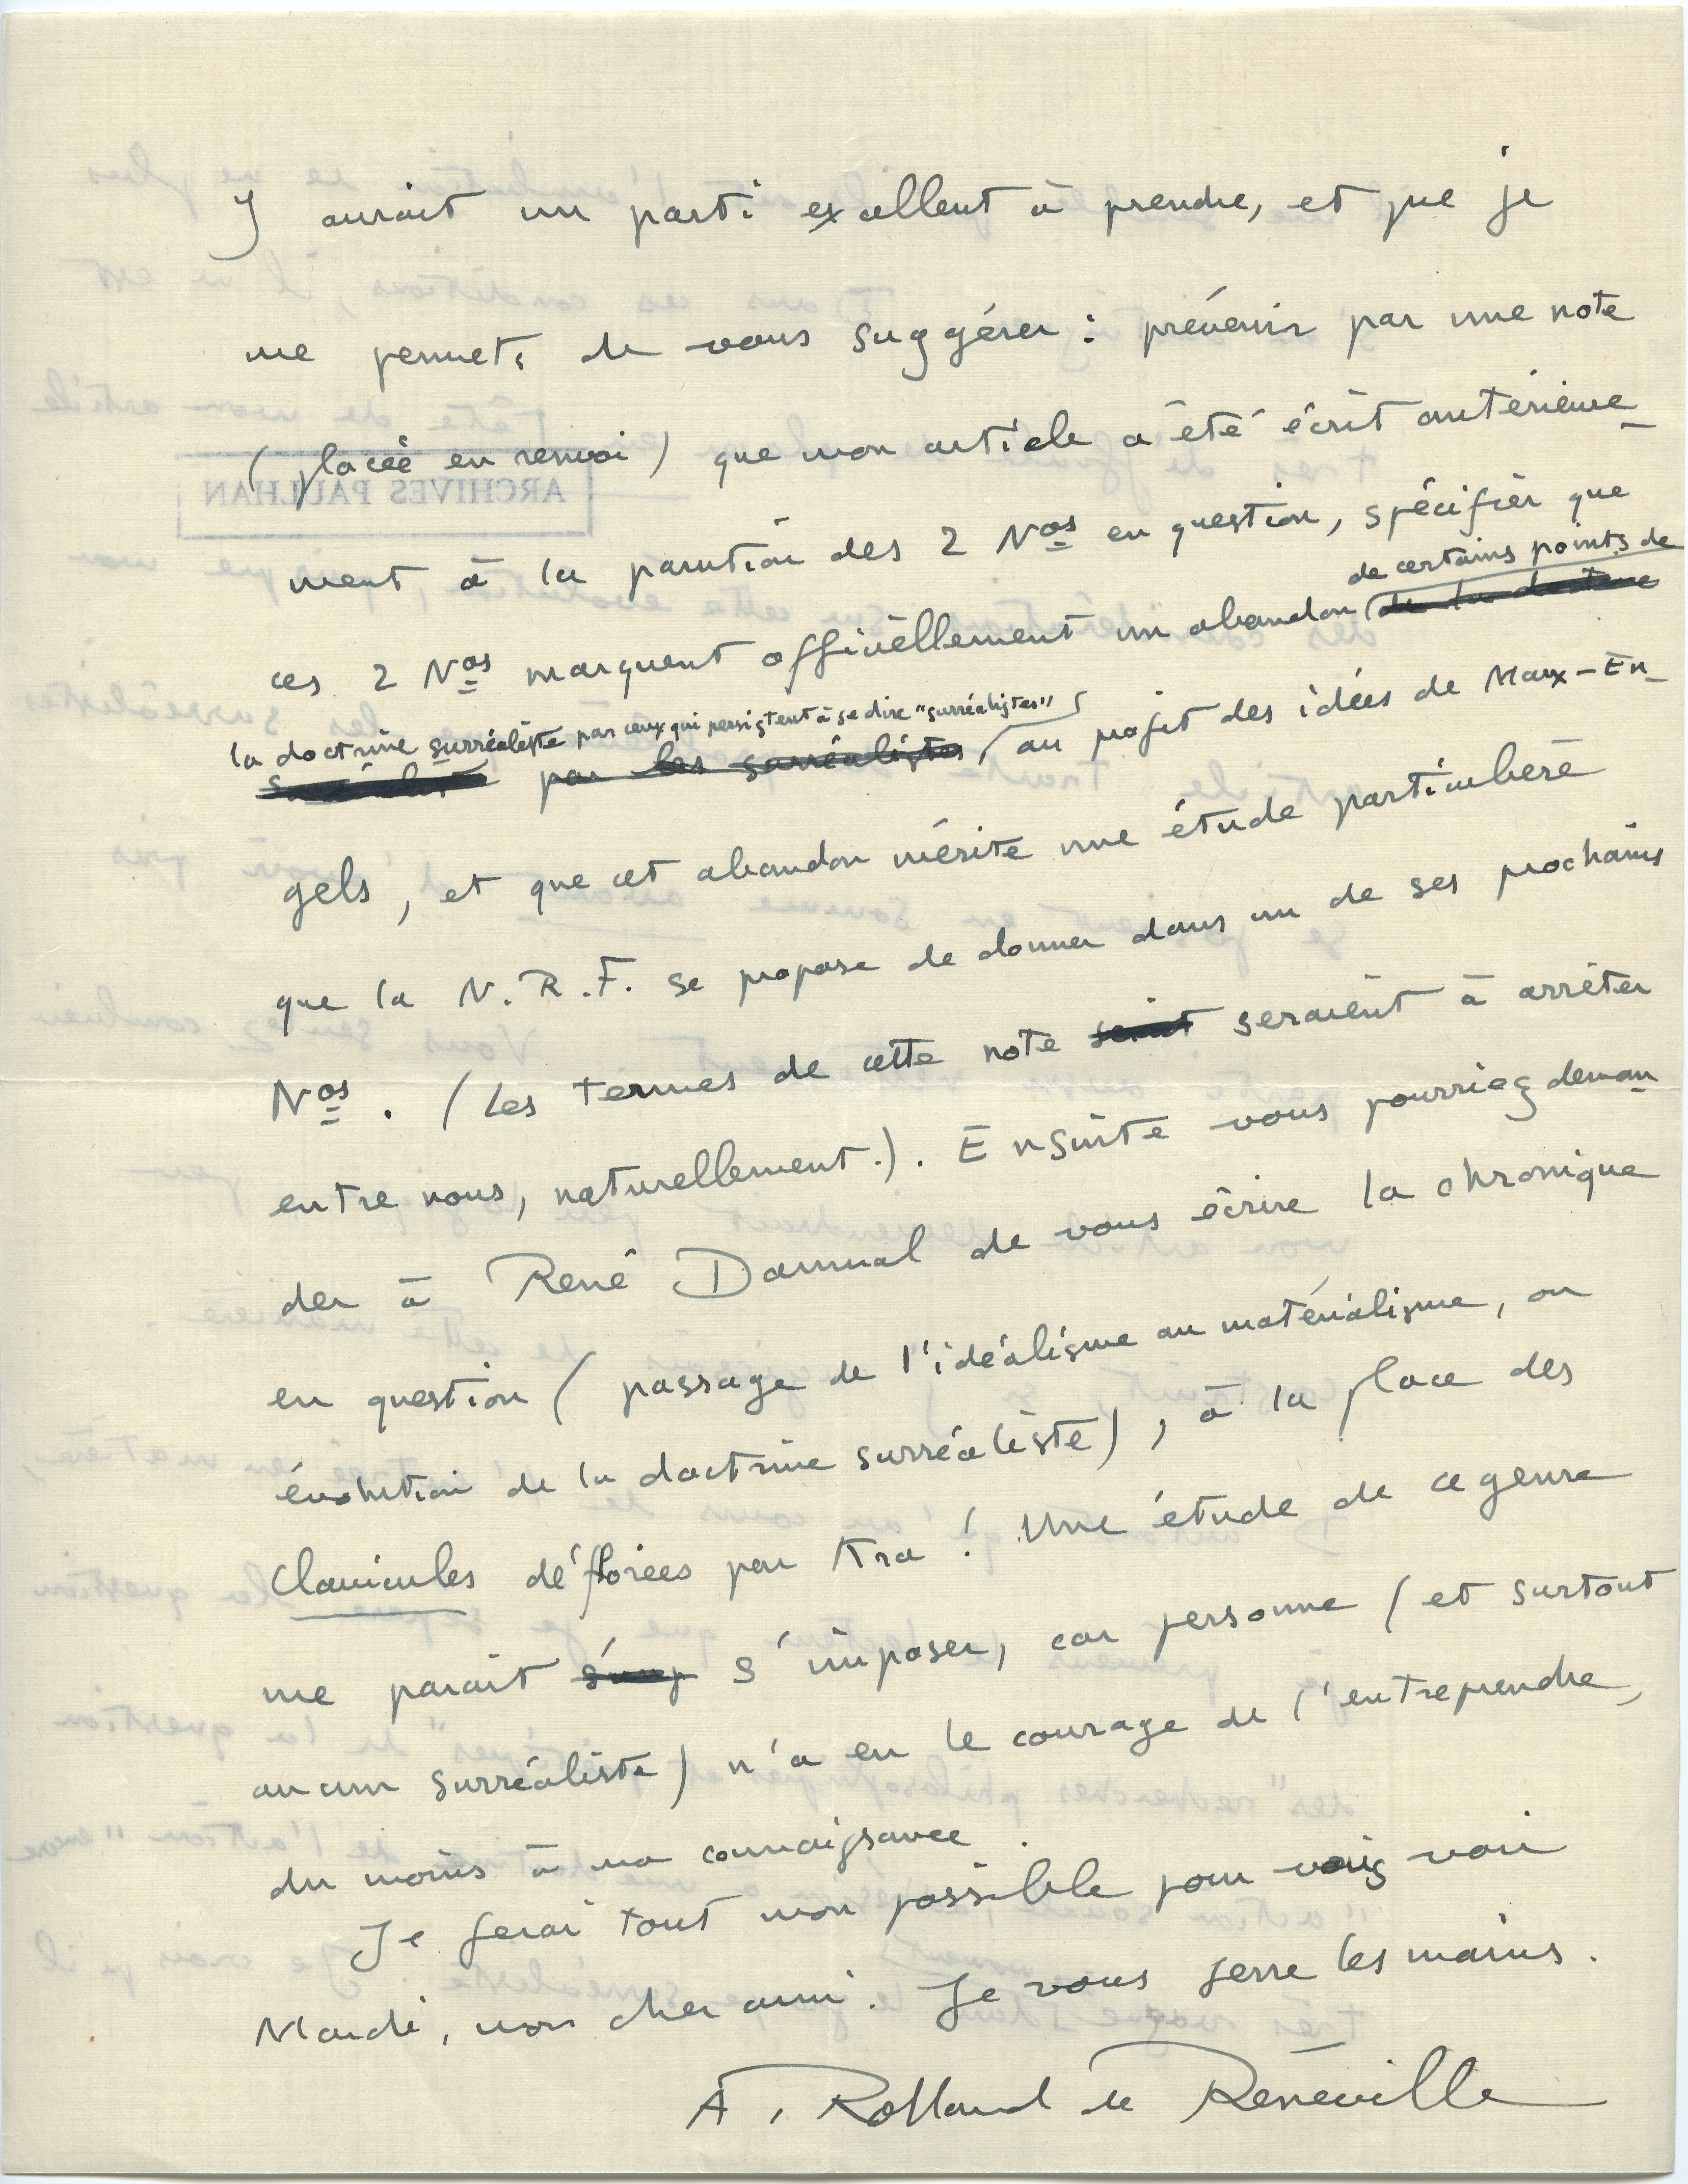 y aurait un parti excellent à prendre, et que je
me permets de vous suggérer : prévenir par une note
(placée en renvoi) que mon article a été écrit antérieure-
ment à la parution des 2 Nos en question, spécifier que
ces 2 Nos marquent officiellement un abandon de certains points de
de la doctrine
la doctrine surréaliste par ceux qui persistent à se dire "surréalistes"
surréaliste par les surréalistes au profit des idées de Marx-En-
gels, et que cet abandon mérite une étude particulière
que la N.R.F. se propose de donner dans un de ses prochains
Nos. (Les termes de cette note seraient à arrêter
entre nous, naturellement.). Ensuite vous pourriez deman-
der à René Daumal de vous écrire la chronique
en question (passage de l'idéalisme au matérialisme, ou
évolution de la doctrine surréaliste), à la place des
Clavicules déflorées par Kra ! Une étude de ce genre
me parait s'imposer, car personne (et surtout
aucun surréaliste) n'a eu le courage de l'entreprendre,
du moins à ma connaissance.
Je ferai tout mon possible pour vous voir
Mardi, mon cher ami. Je vous serre les mains.
A. Rolland de Renéville
ARCHIVES PAULHAN